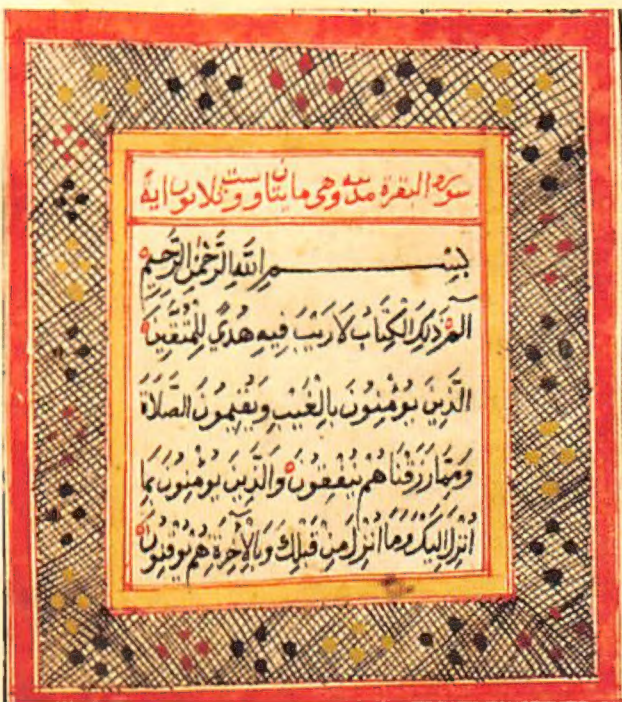 سورة البقرة مدنية وهى مايتان وست وثلاثون اية
بِسْمِ اللَّهِ الرَّحْمٰنِ الرَّحِيمِ
الٓمٓ ذٰلِكَ الْكِتَابُ لَا رَيْبَ فِيهِ هُدًي لِلْمُتَّقِينَ
الَّذِينَ يُؤْمِنُونَ بِالْغَيْبِ وَيُقِيمُونَ الصَّلَاةَ
وَمِمَّا رَزَقْنَا هُمْ يُنْفِقُونَ وَالَّذِينَ يُؤْمِنُونَ بِمَا
اُنْزِلَ اِلَيْكَ وَمَا اُنْزِلَ مِنْ قَبْلِكَ وَبِالْآخِرَةِ هُمْ يُوقِنُونَ